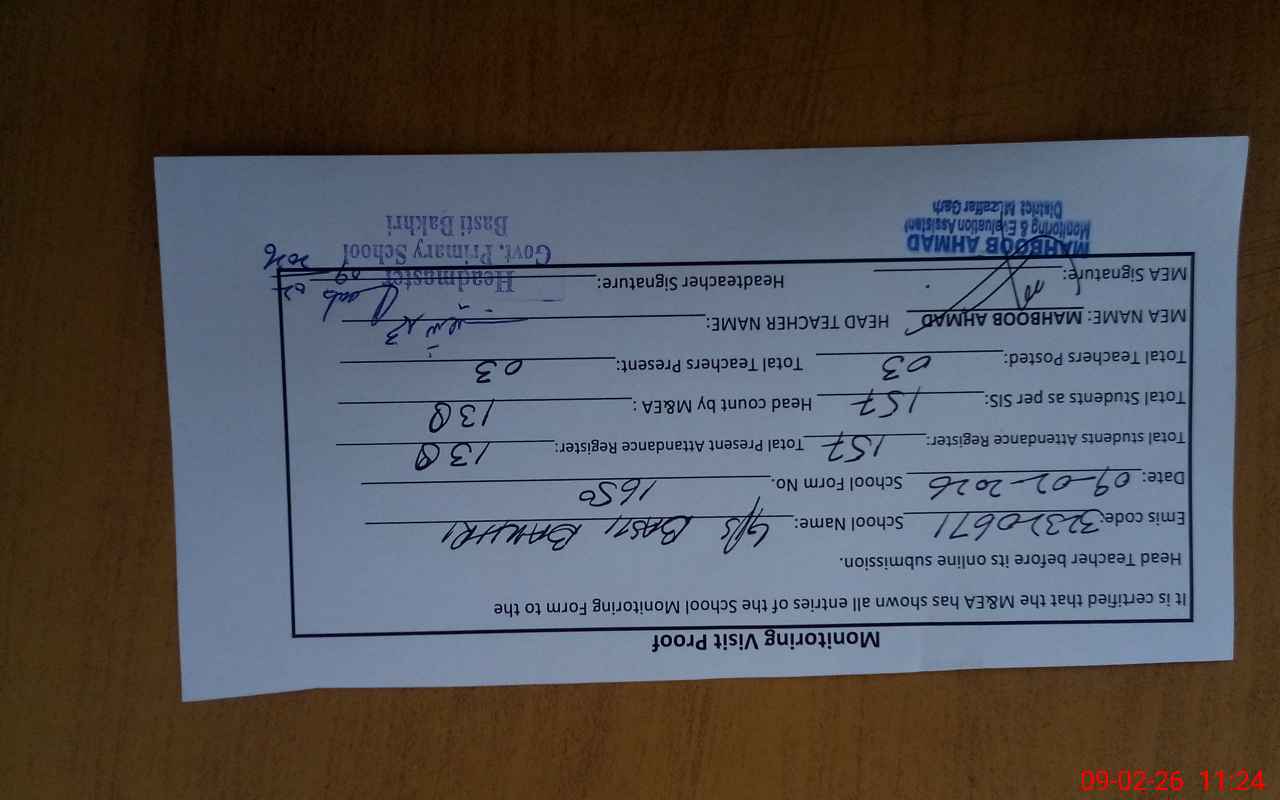 Monitoring Visit Proof
It is certified that the M&EA has shown all entries of the School Monitoring Form to the
Head Teacher before its online submission.
Emis code: 32320671 School Name: G/s BASTI BAKHRI
Date: 09-02-2026 School Form No. 1650
Total students Attendance Register: 157 Total Present Attandance Register: 130
Total Students as per SIS: 157 Head count by M&EA: 130
Total Teachers Posted: 03 Total Teachers Present: 03
MEA NAME: MAHBOOB AHMAD HEAD TEACHER NAME:
MEA Signature: Headteacher Signature:
09
02
2026
MAHBOOB AHMAD
Monitoring & Evaluation Assistant
District Muzaffar Garh
Headmaster
Govt. Primary School
Basti Bakhri
09-02-26 11:24